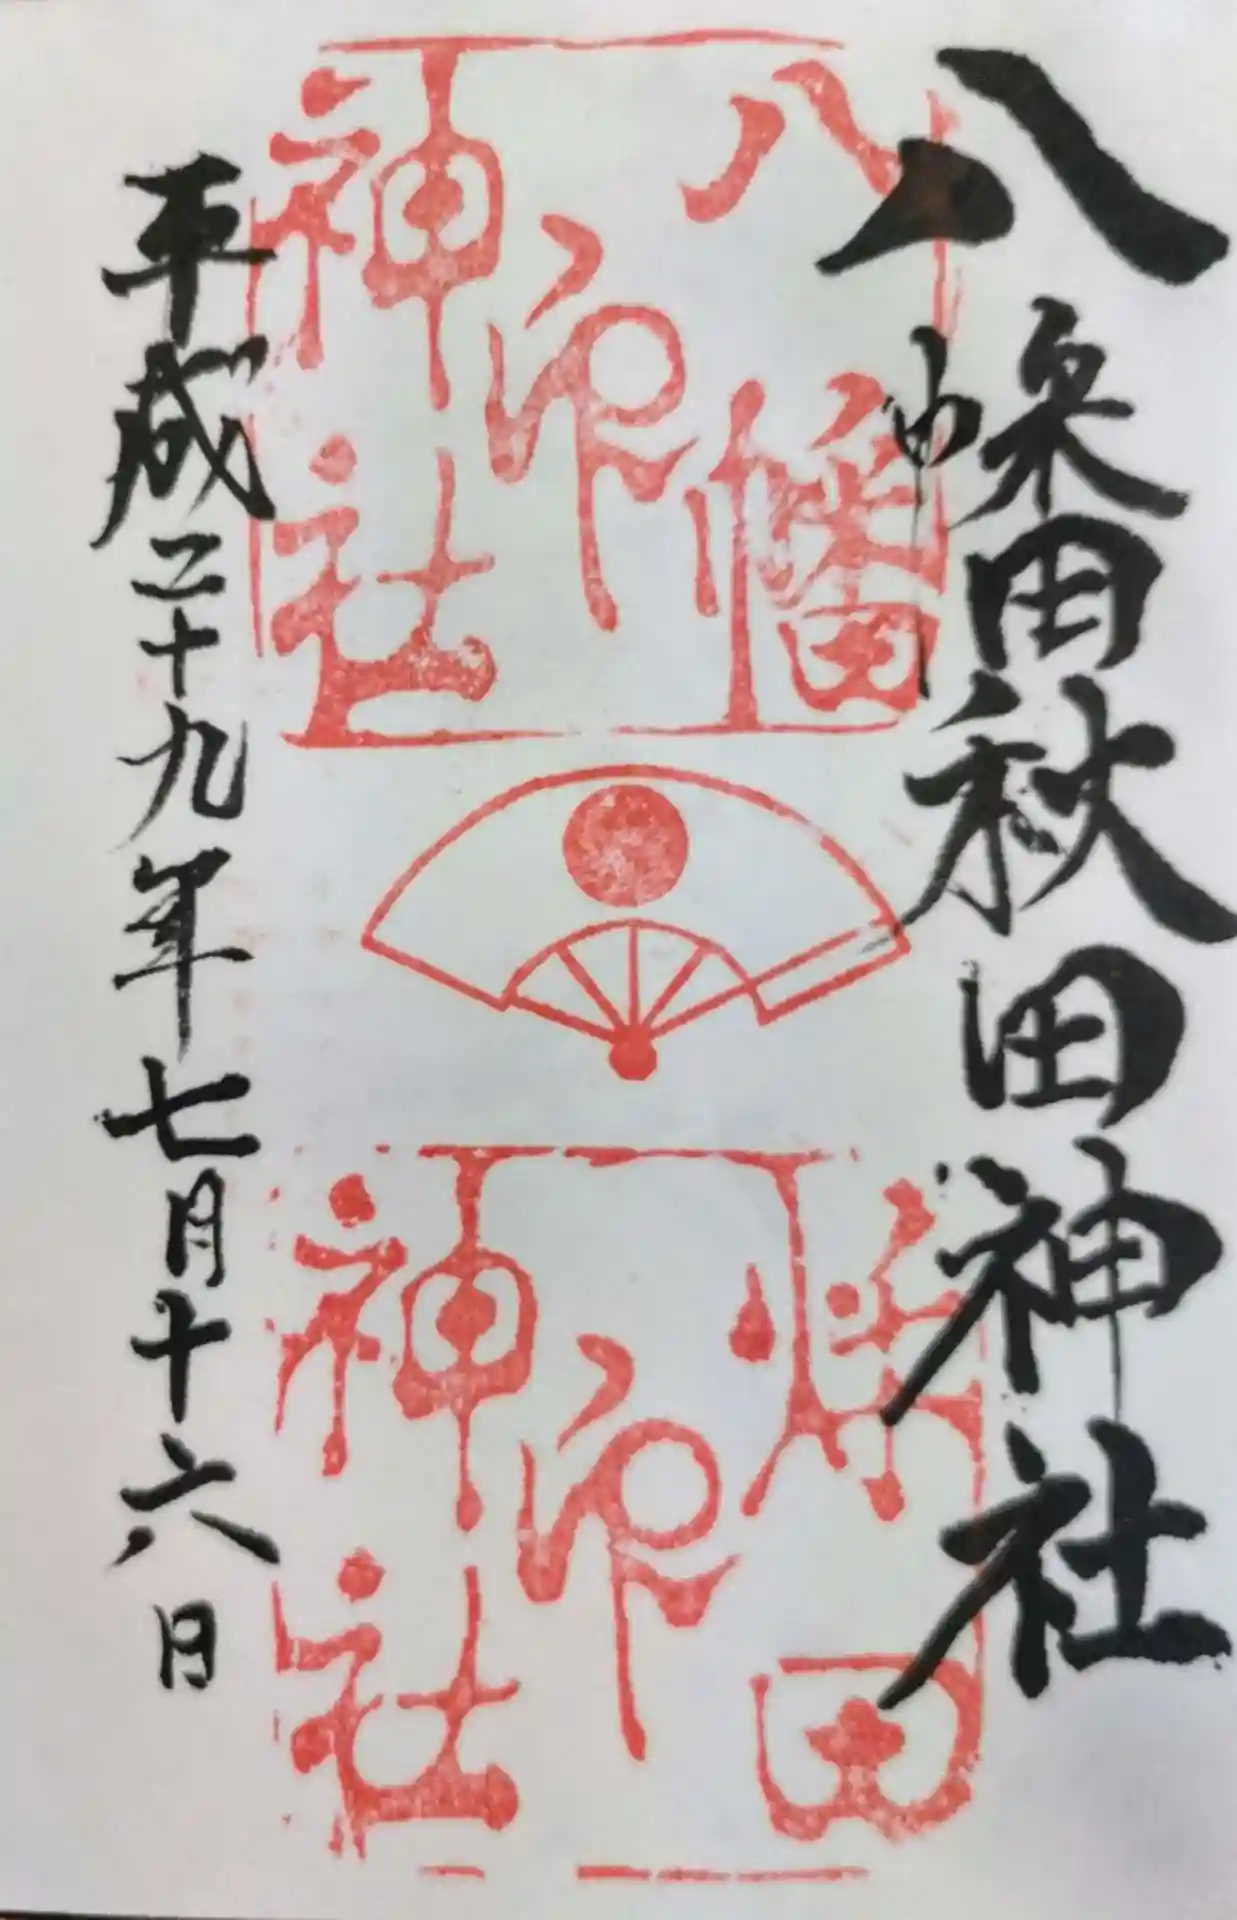 八幡秋田神社
八幡神社印
秋田神社印
平成二十九年七月十六日